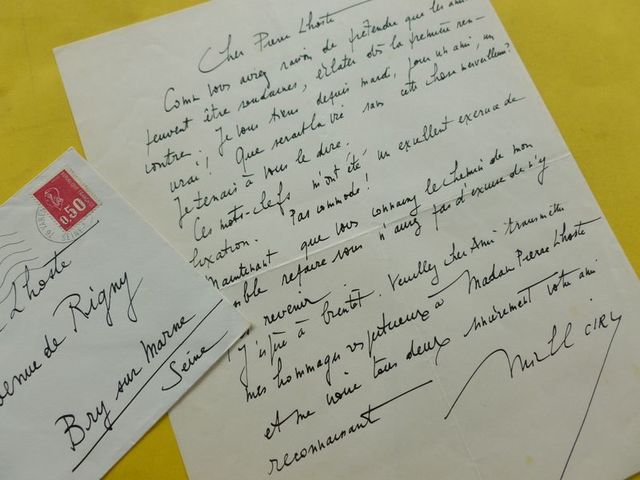 Cher Pierre Lhoste
Comme vous aviez raison de prétendre que les ami-
peuvent être soudaines, éclater dès la première ren-
contre. Je vous tiens depuis mardi, pour un ami, un
vrai! Que serait la vie sans cette chose merveilleuse?
Je tenais à vous le dire.
Ces mots-clefs m'ont été un excellent exercice de
fixation. Pas commode!
Maintenant que vous connaissez le chemin de mon
refaire vous n'aurez pas d'excuse de n'y
revenir.
J'espère à bientôt. Veuillez cher Ami transmettre
mes hommages respectueux à Madame Pierre Lhoste
et me croire tous deux sincèrement votre ami
reconnaissant
CIRY
0.50
Lhoste
avenue de Rigny
Bry sur Marne
Seine